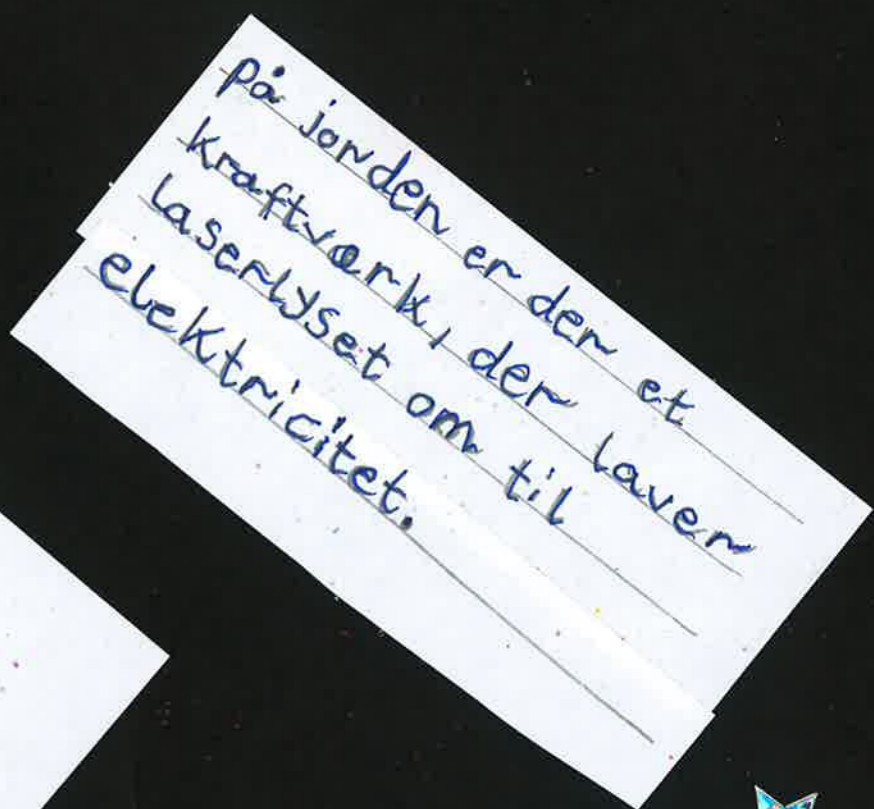 på jorden er der et
kraftværk, der laver
laserlyset om til
elektricitet.